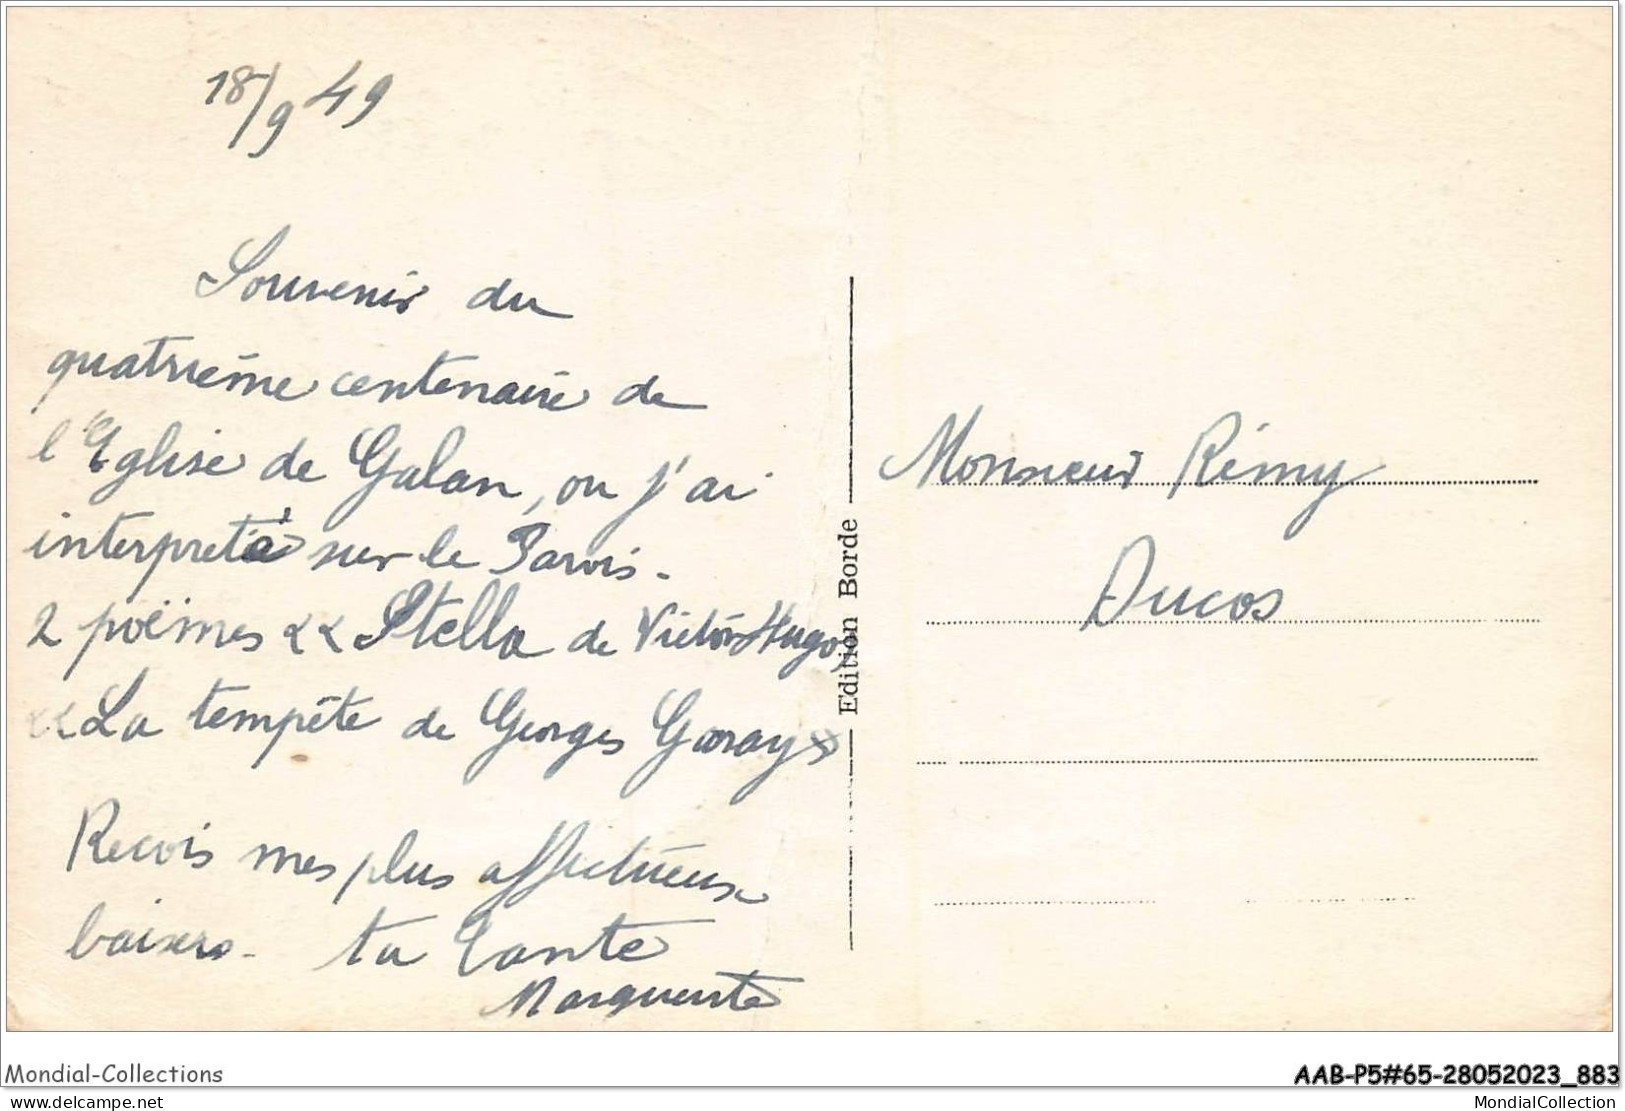 18/9 49
Souvenir du
quatrième centenaire de
l'Eglise de Galan, ou j'ai
interpreté sur le Parvis -
2 poëmes << Stella de Victor Hugo,
<< La tempête de Georges Garay >>
Recois mes plus affectueux
baisers - ta Tante
Marguerite
Edition Borde
Monsieur Rémy
Ducos
Mondial-Collections
AAB-P5#65-28052023_883
www.delcampe.net
MondialCollection